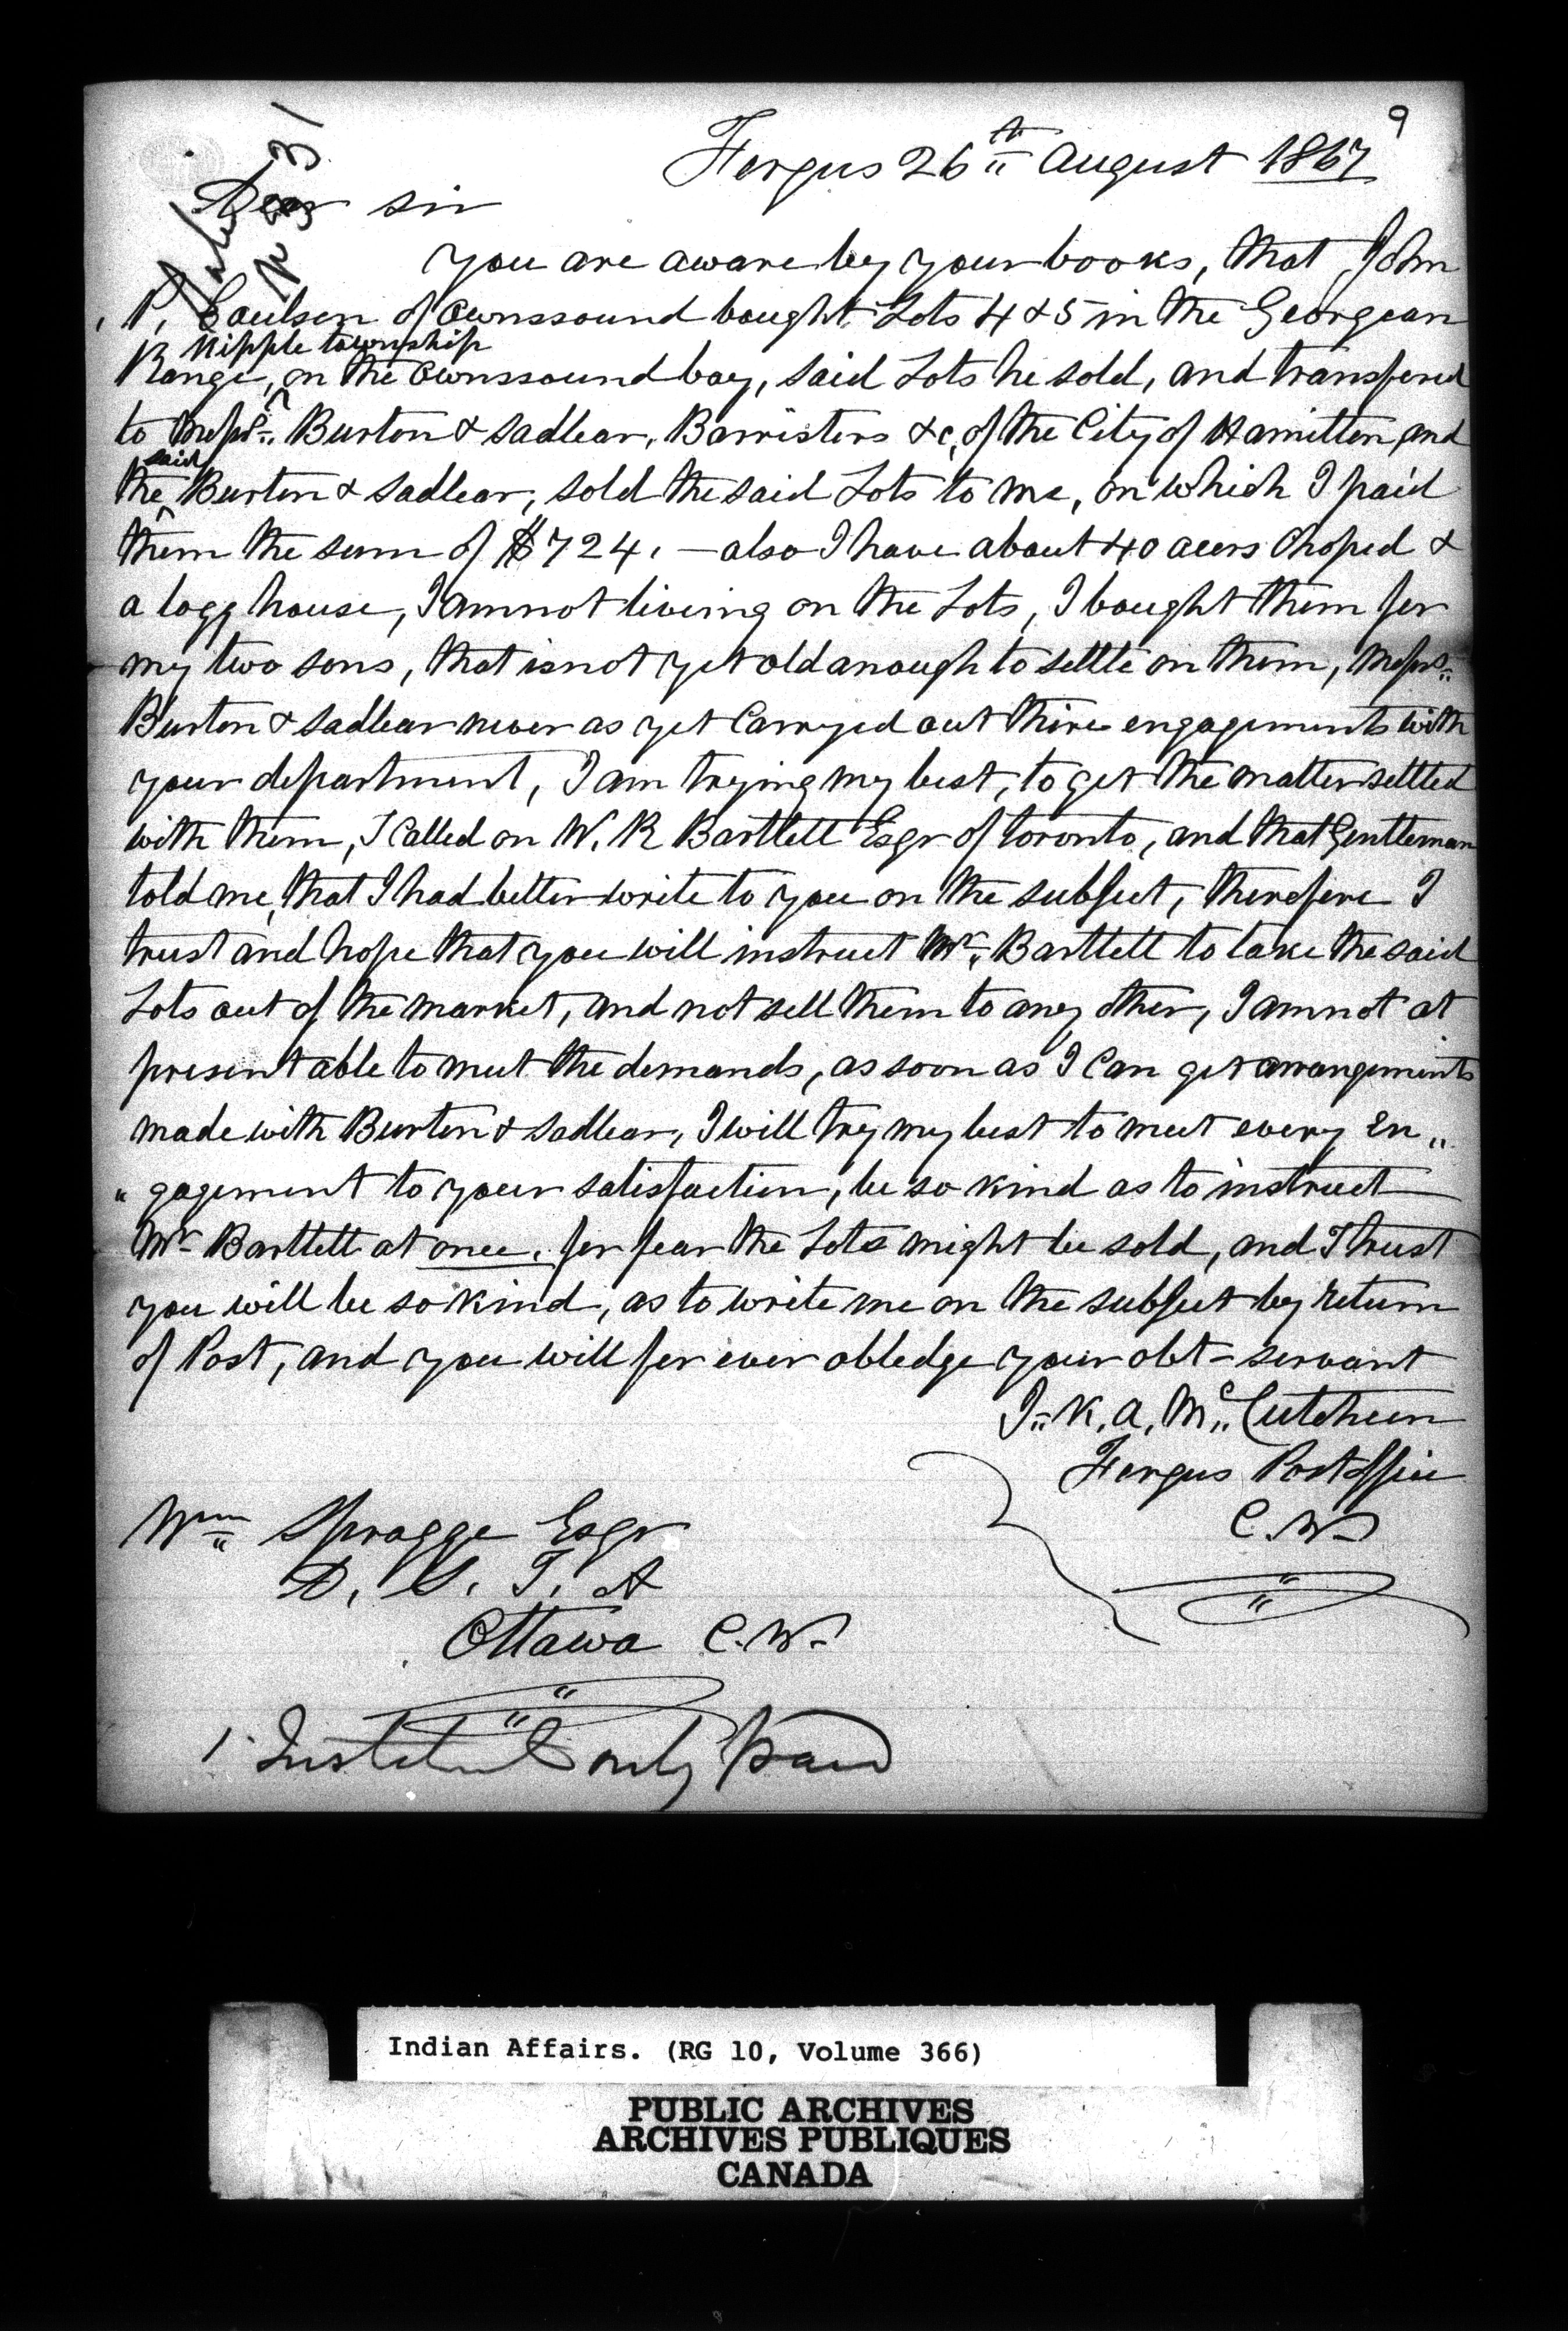 9
Fergus 26th August 1867
Dear sir
you are aware by your books, that John
P. Coulson of ownssound bought Lots 4 & 5 in the Georgean
Nipple township
Range, on the ownssound bay, said Lots he sold, and transfered
to Messrs. Burton & Sadlear, Barristers &c, of the City of Hamilton, and
said
the Burton & Sadlear, sold the said Lots to me, on which I paid
them the sum of $724. — also I have about 40 acers Choped &
a logg house, I am not liveing on the Lots, I bought them for
my two sons, that is not yet old anough to settle on them, Messrs.
Burton & Sadlear never as yet Carryed out thire engagements with
your department, I am trying my best, to get the matter settled
with them, I Called on W. R Bartlett Esqr of toronto, and that Gentleman
told me, that I had better write to you on the subject, therefore I
trust and hope that you will instruct Mr. Bartlett to take the said
Lots out of the market, and not sell them to any other, I am not at
present able to meet the demands, as soon as I Can get arrangements
made with Burton & Sadlear, I will try my best to meet every En„
„gagement to your satisfaction, be so kind as to instruct
Mr Bartlett at once, for fear the Lots might be sold, and I trust
you will be so kind, as to write me on the subject by return
of Post, and you will for ever obledge your obt- servant
J. K. A. Mc Cutcheon
Fergus Post office
C. W.
Wm Spragge Esqr
D. S. I. A
Ottawa C. W.
1. Instalment only paid
Indian Affairs. (RG 10, Volume 366)
PUBLIC ARCHIVES
ARCHIVES PUBLIQUES
CANADA